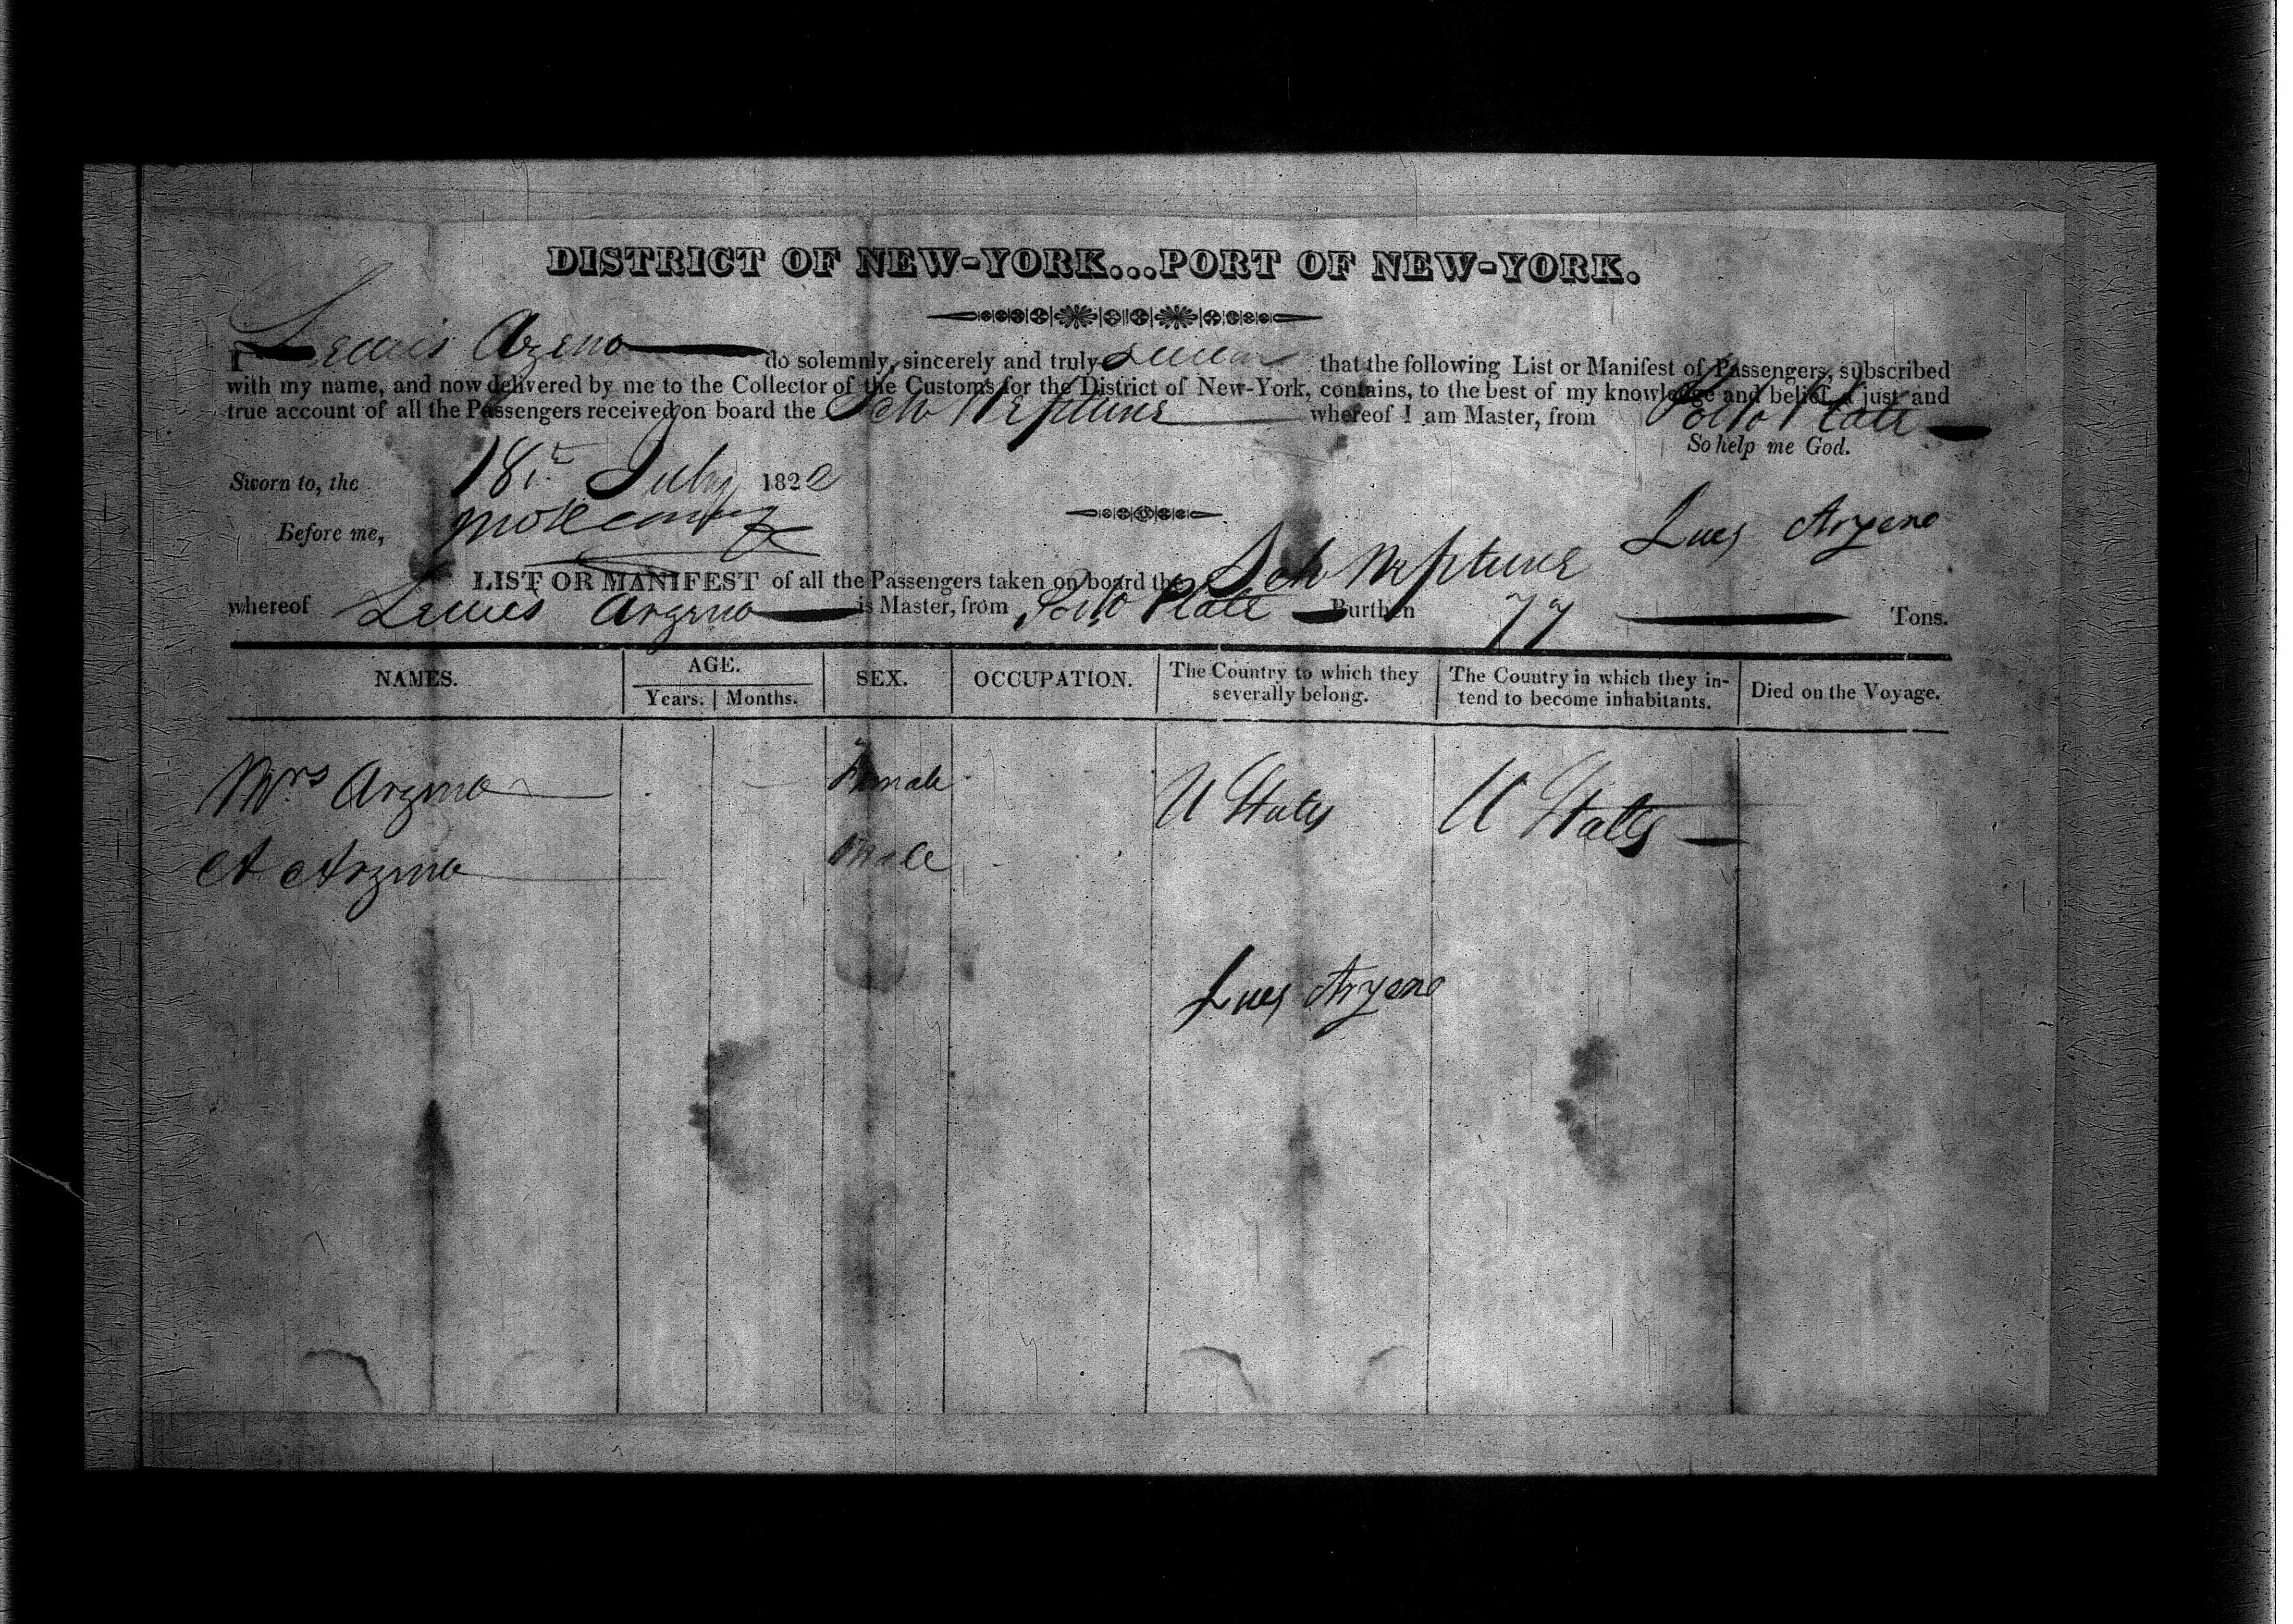 DISTRICT OF NEW-YORK...PORT OF NEW-YORK.
I Lewis Arzeno do solemnly, sincerely and truly swear that the following List or Manifest of Passengers, subscribed
with my name, and now delivered by me to the Collector of the Customs for the District of New-York, contains, to the best of my knowledge and belief, a just and
true account of all the Passengers received on board the Sch Neptune whereof I am Master, from Porto Plate
So help me God.
Sworn to, the 18t July 182
Before me,
Lues Arzeno
LIST OR MANIFEST of all the Passengers taken on board the Sch Neptune
whereof Lewis Arzeno is Master, from Porto Plate Burthen 77 Tons.
NAMES. AGE. SEX. OCCUPATION. The Country to which they severally belong. The Country in which they intend to become inhabitants. Died on the Voyage.
Years. Months.
Mrs Arzeno Female U States U States
A Arzeno Male
Lues Arzeno